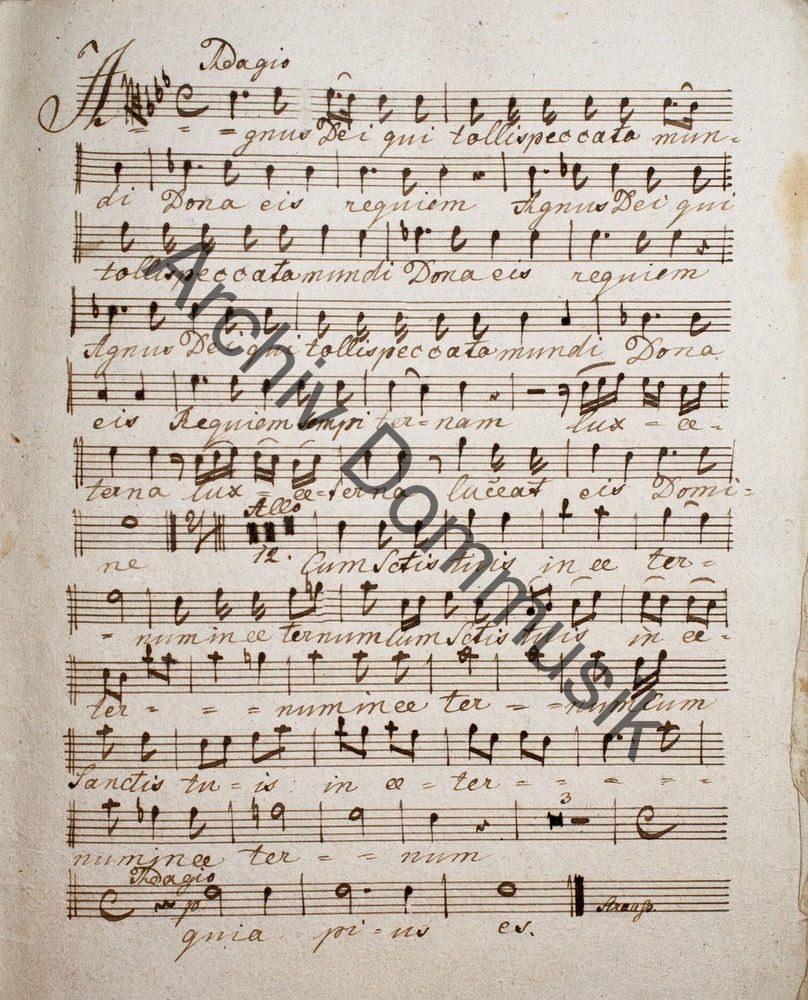 Adagio
A - - - gnus Dei qui tollis peccata mun-
di Dona eis requiem Agnus Dei qui
tollis peccata mundi Dona eis requiem
Agnus Dei qui tollis peccata mundi Dona
eis Requiem sempiter=nam lux = ee=
terna lux = ee=terna luceat eis Domi=
Allo
12.
ne Cum Sctis tuis in ee ter=
- num in ee ternum cum Sctis tuis in ee=
ter= = = num in ee ter = = num Cum
Sanctis tu=is in ee=ter = = = = =
3
num in ee ter = = num
Adagio
p.
quia pi=us es.
Archiv Dommusik